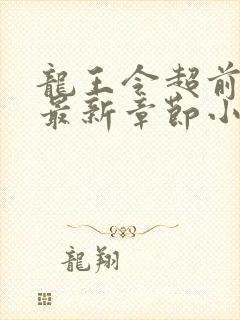 龍王令超前
最新章節小
龍翔